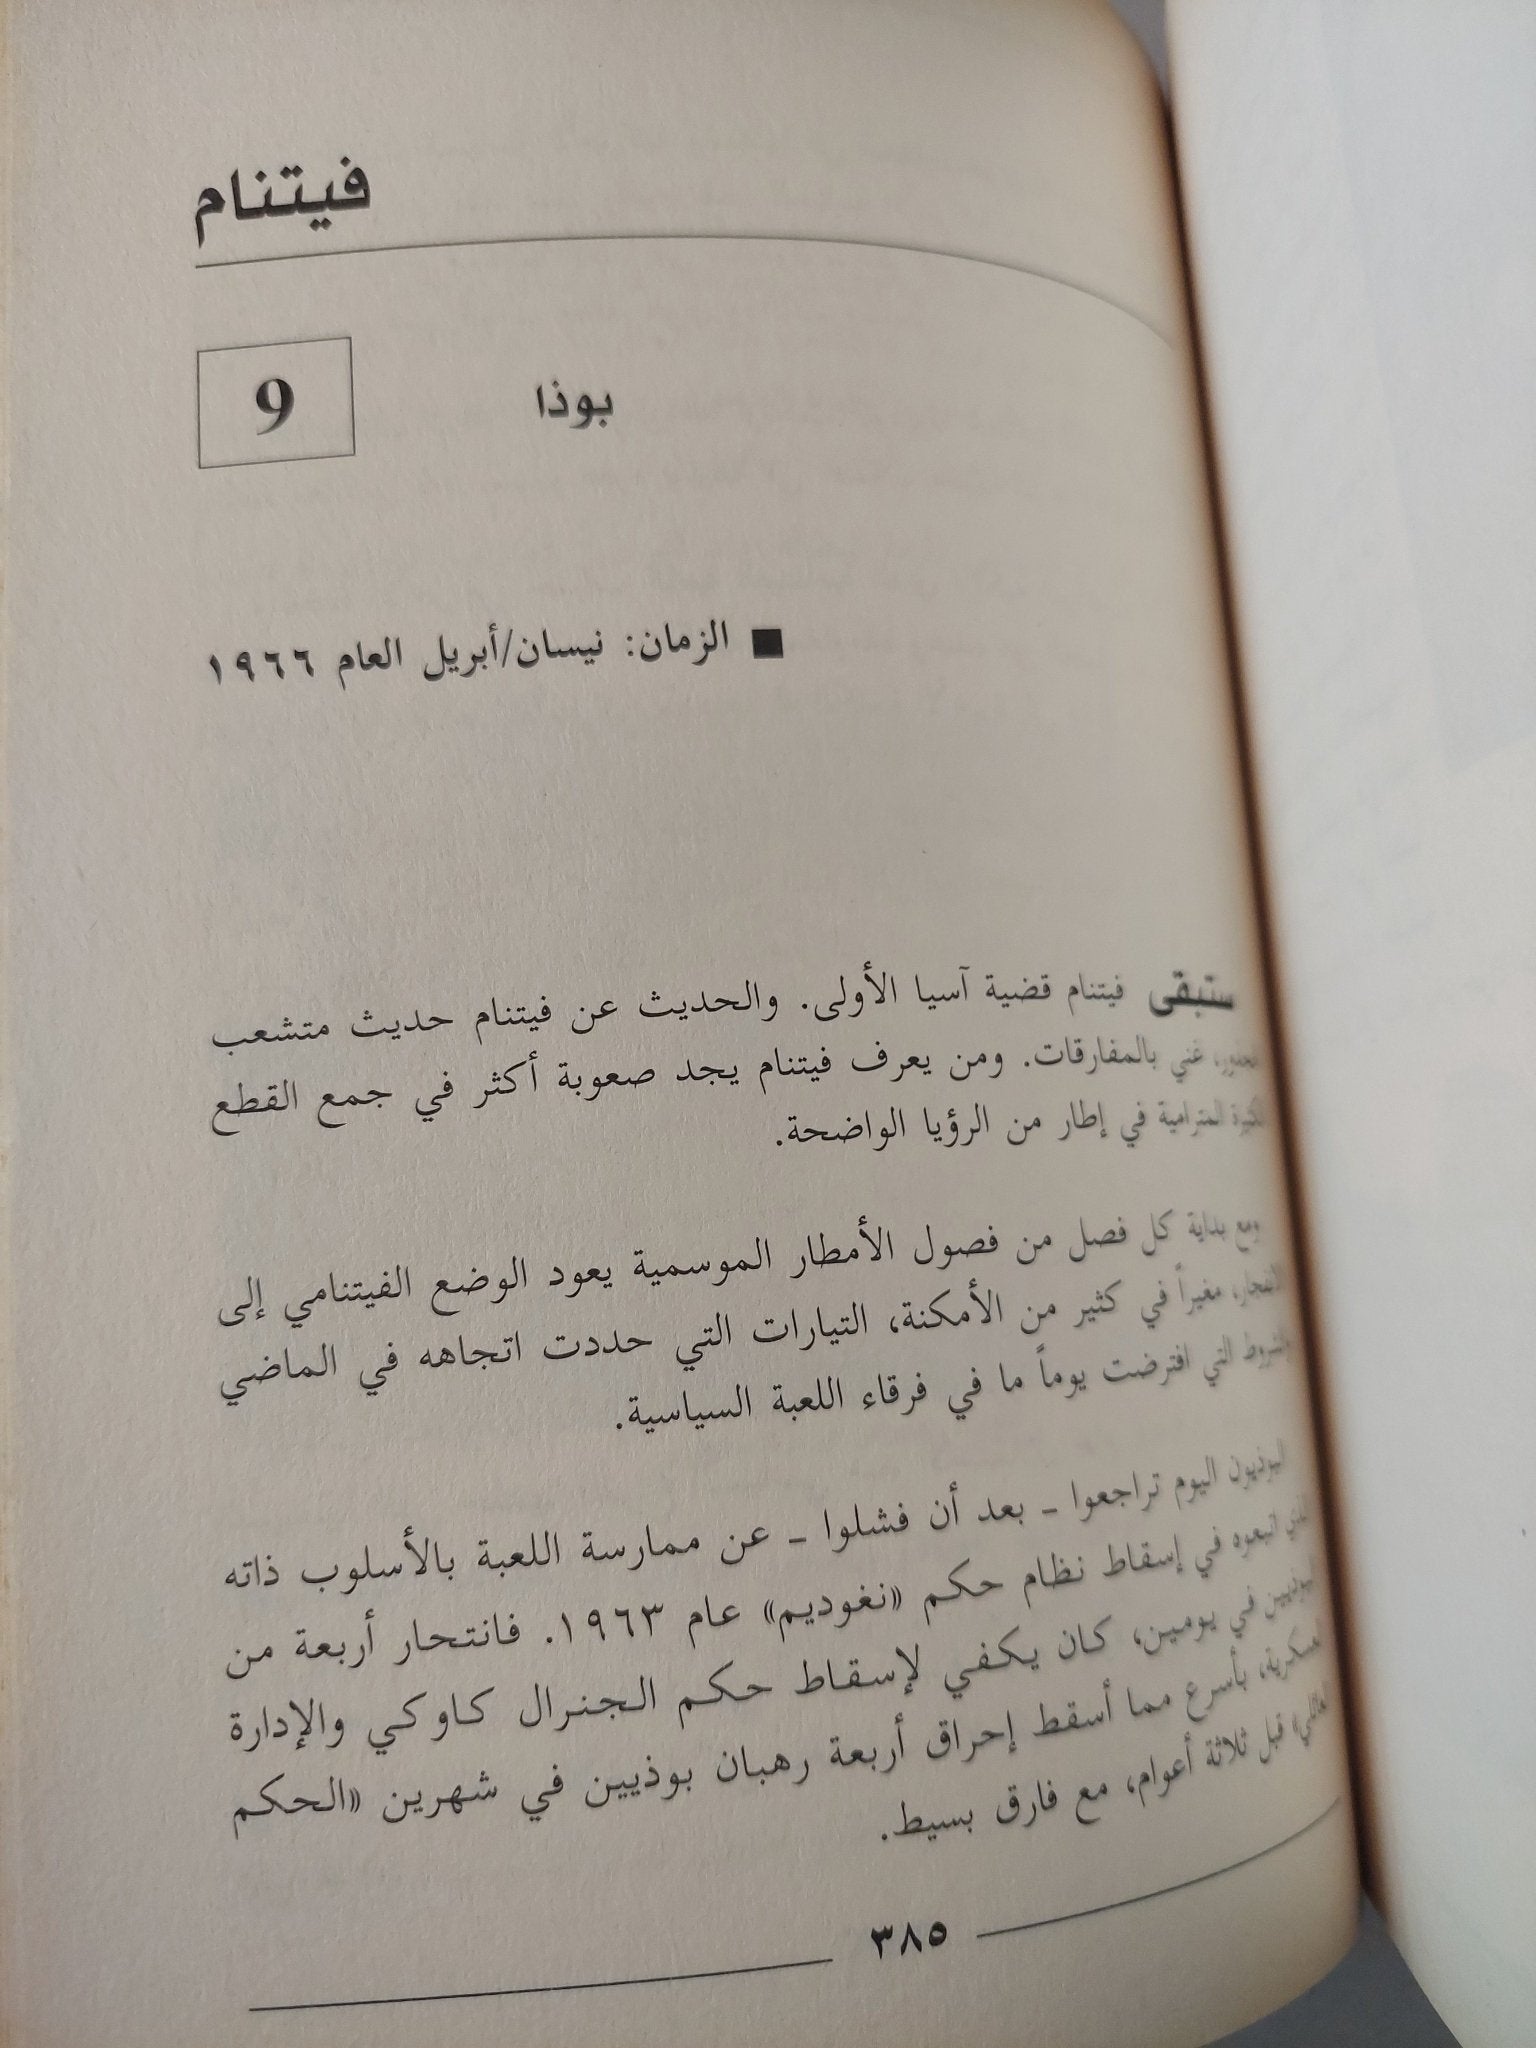 فيتنام
9
بوذا
■ الزمان: نيسان/أبريل العام ١٩٦٦
ستبقى فيتنام قضية آسيا الأولى. والحديث عن فيتنام حديث متشعب
الجذور، غني بالمفارقات. ومن يعرف فيتنام يجد صعوبة أكثر في جمع القطع
الكثيرة المترامية في إطار من الرؤيا الواضحة.
ومع بداية كل فصل من فصول الأمطار الموسمية يعود الوضع الفيتنامي إلى
الانفجار، مغيراً في كثير من الأمكنة، التيارات التي حددت اتجاهه في الماضي
والشروط التي افترضت يوماً ما في فرقاء اللعبة السياسية.
البوذيون اليوم تراجعوا - بعد أن فشلوا - عن ممارسة اللعبة بالأسلوب ذاته
الذي اتبعوه في إسقاط نظام حكم «نغوديم» عام ١٩٦٣. فانتحار أربعة من
البوذيين في يومين، كان يكفي لإسقاط حكم الجنرال كاوكي والإدارة
العسكرية، بأسرع مما أسقط إحراق أربعة رهبان بوذيين في شهرين «الحكم
العائلي» قبل ثلاثة أعوام، مع فارق بسيط.
٣٨٥